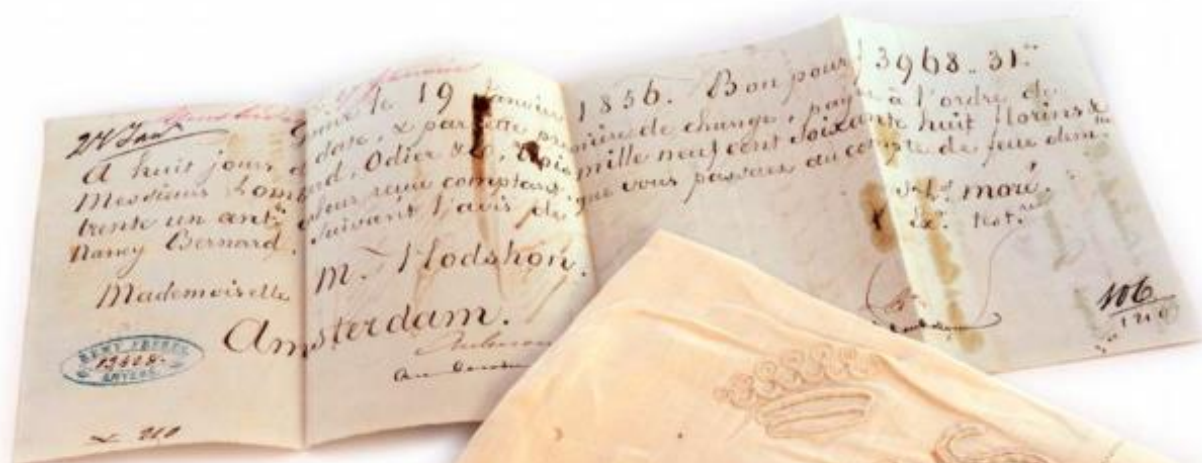 24 Janv
le 19 Janvier 1856. Bon pour f 3968.. 31.
A huit jours date, & par cette première de change, payez à l'ordre de
Messieurs Lombard, Odier & Co, trois mille neuf cent soixante huit florins &
trente un cent valeur reçue comptant, que vous passerez au compte de feue
Nancy Bernard. suivant l'avis de
moré.
not.
Mademoiselle M. Hodshon.
Amsterdam.
RENT FRERES
ANVERS
106
1210
210